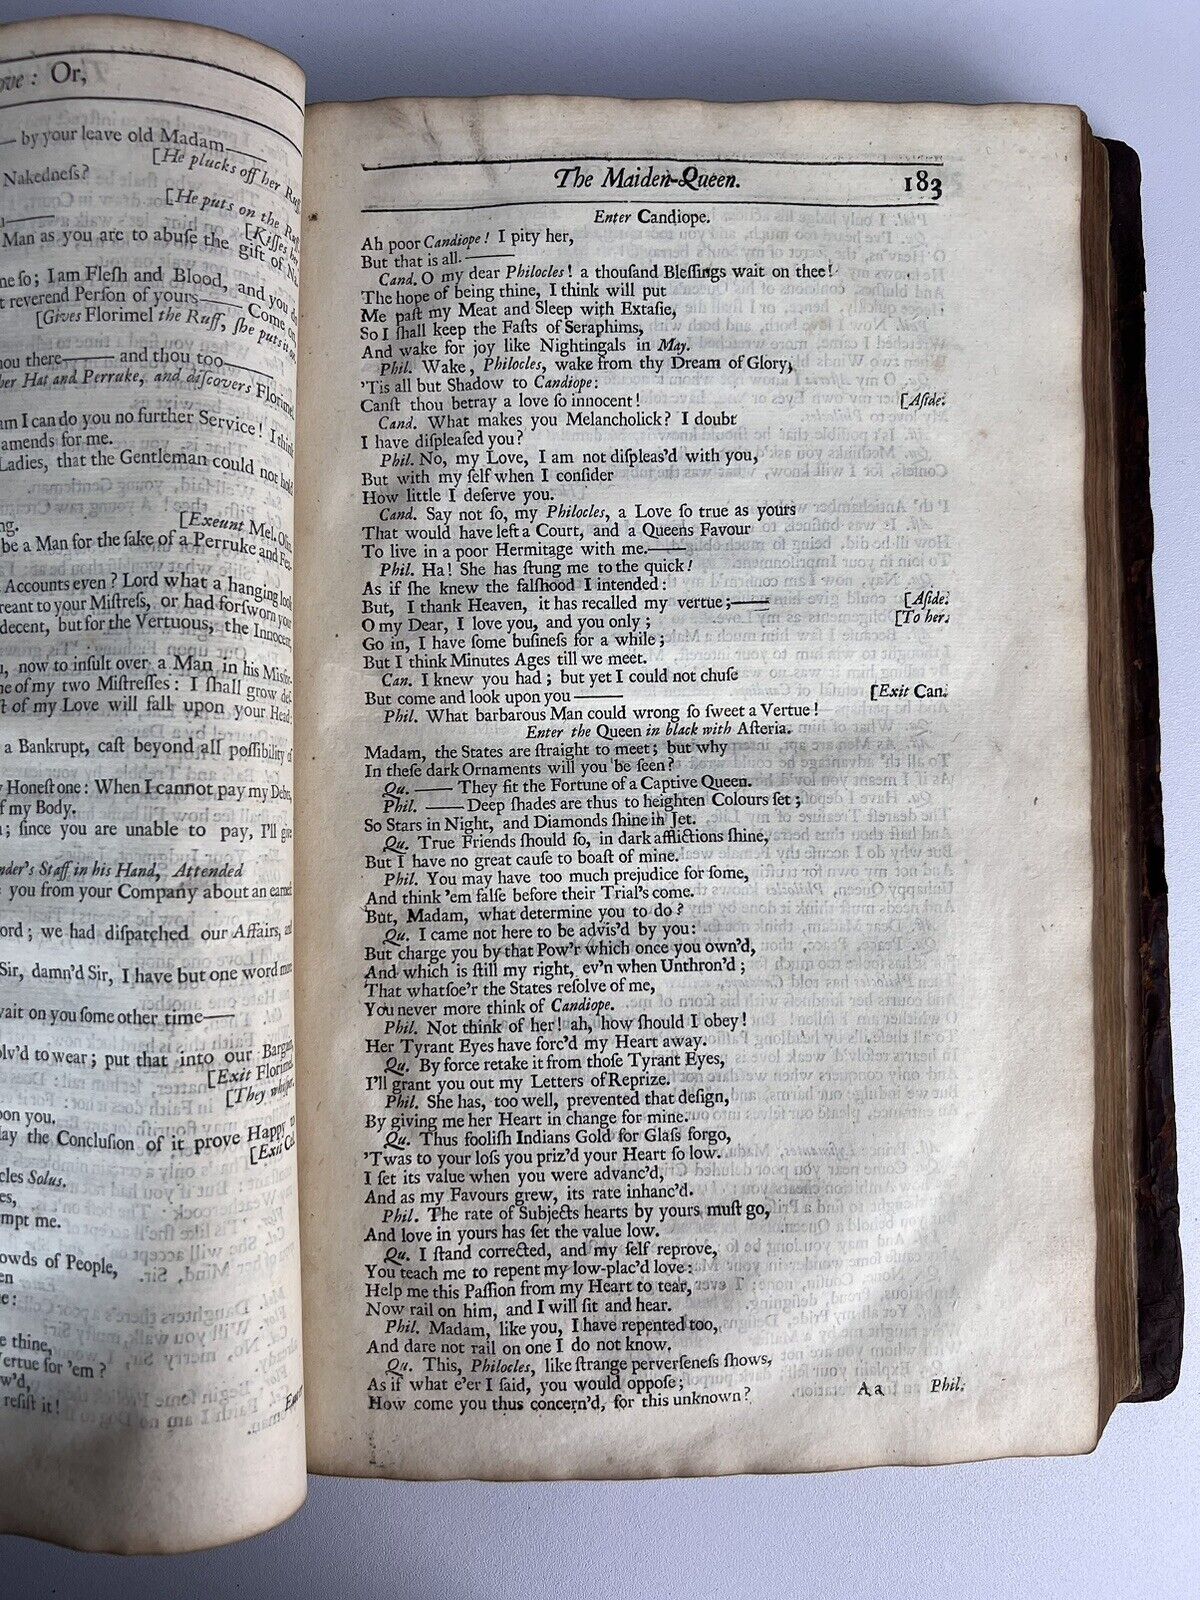 ove: Or,
— by your leave old Madam——
[He plucks off her Ruff.
Nakedneſs?
[He puts on the Ruff.
[Kiſſes her
Man as you are to abuſe the gift of Na-
ne ſo; I am Fleſh and Blood, and you do
t reverend Perſon of yours—— Come on,
[Gives Florimel the Ruff, ſhe puts it on.
hou there—— and thou too——
her Hat and Perruke, and diſcovers Florimel.
am I can do you no further Service! I think
amends for me.
Ladies, that the Gentleman could not hold
ng.
[Exeunt Mel. Olin.
be a Man for the ſake of a Perruke and Fea-
Accounts even? Lord what a hanging look
reant to your Miſtreſs, or had forſworn your
decent, but for the Vertuous, the Innocent,
u, now to inſult over a Man in his Misfor-
ne of my two Miſtreſſes: I ſhall grow deſ-
ſt of my Love will fall upon your Head:
a Bankrupt, caſt beyond all poſſibility of
y Honeſt one: When I cannot pay my Debt,
of my Body.
u; ſince you are unable to pay, I'll give
nder's Staff in his Hand, Attended
e you from your Company about an earneſt
ord; we had diſpatched our Affairs, and
Sir, damn'd Sir, I have but one word more
wait on you ſome other time——
olv'd to wear; put that into our Bargain
[Exit Florimel.
[They whiſper.
pon you.
May the Concluſion of it prove Happy to
[Exit Cel.
cles Solus.
es,
mpt me.
owds of People,
en
e:
e thine,
Vertue for 'em?
w'd,
reſiſt it!
Enter
The Maiden-Queen. 183
Enter Candiope.
Ah poor Candiope! I pity her,
But that is all.——
Cand. O my dear Philocles! a thouſand Bleſſings wait on thee!
The hope of being thine, I think will put
Me paſt my Meat and Sleep with Extaſie,
So I ſhall keep the Faſts of Seraphims,
And wake for joy like Nightingals in May.
Phil. Wake, Philocles, wake from thy Dream of Glory,
'Tis all but Shadow to Candiope:
Canſt thou betray a love ſo innocent! [Aſide.
Cand. What makes you Melancholick? I doubt
I have diſpleaſed you?
Phil. No, my Love, I am not diſpleas'd with you,
But with my ſelf when I conſider
How little I deſerve you.
Cand. Say not ſo, my Philocles, a Love ſo true as yours
That would have left a Court, and a Queens Favour
To live in a poor Hermitage with me.——
Phil. Ha! She has ſtung me to the quick!
As if ſhe knew the falſhood I intended:
But, I thank Heaven, it has recalled my vertue;—— [Aſide.
O my Dear, I love you, and you only; [To her.
Go in, I have ſome buſineſs for a while;
But I think Minutes Ages till we meet.
Can. I knew you had; but yet I could not chuſe
But come and look upon you —— [Exit Can.
Phil. What barbarous Man could wrong ſo ſweet a Vertue!
Enter the Queen in black with Aſteria.
Madam, the States are ſtraight to meet; but why
In theſe dark Ornaments will you be ſeen?
Qu. —— They fit the Fortune of a Captive Queen.
Phil. —— Deep ſhades are thus to heighten Colours ſet;
So Stars in Night, and Diamonds ſhine in Jet.
Qu. True Friends ſhould ſo, in dark afflictions ſhine,
But I have no great cauſe to boaſt of mine.
Phil. You may have too much prejudice for ſome,
And think 'em falſe before their Trial's come.
But, Madam, what determine you to do?
Qu. I came not here to be advis'd by you:
But charge you by that Pow'r which once you own'd,
And which is ſtill my right, ev'n when Unthron'd;
That whatſoe'r the States reſolve of me,
You never more think of Candiope.
Phil. Not think of her! ah, how ſhould I obey!
Her Tyrant Eyes have forc'd my Heart away.
Qu. By force retake it from thoſe Tyrant Eyes,
I'll grant you out my Letters of Reprize.
Phil. She has, too well, prevented that deſign,
By giving me her Heart in change for mine.
Qu. Thus fooliſh Indians Gold for Glaſs forgo,
'Twas to your loſs you priz'd your Heart ſo low.
I ſet its value when you were advanc'd,
And as my Favours grew, its rate inhanc'd.
Phil. The rate of Subjects hearts by yours muſt go,
And love in yours has ſet the value low.
Qu. I ſtand corrected, and my ſelf reprove,
You teach me to repent my low-plac'd love:
Help me this Paſſion from my Heart to tear,
Now rail on him, and I will ſit and hear.
Phil. Madam, like you, I have repented too,
And dare not rail on one I do not know.
Qu. This, Philocles, like ſtrange perverſeneſs ſhows,
As if what e'er I ſaid, you would oppoſe;
How come you thus concern'd, for this unknown?
A a Phil.